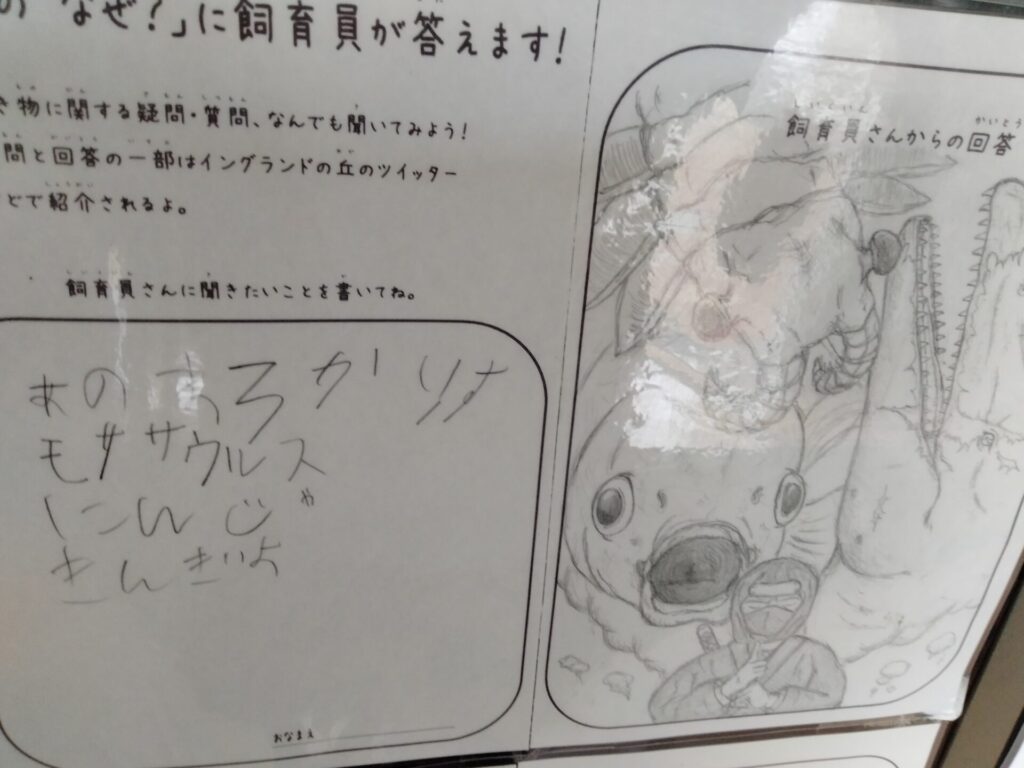 の なぜ?」に飼育員が答えます!
物に関する疑問・質問、なんでも聞いてみよう!
問と回答の一部はイングランドの丘のツイッター
どで紹介されるよ。
飼育員さんに聞きたいことを書いてね。
モササウルス
にんじゃ
きんぎよ
おなまえ
しいくいん かいとう
飼育員さんからの回答